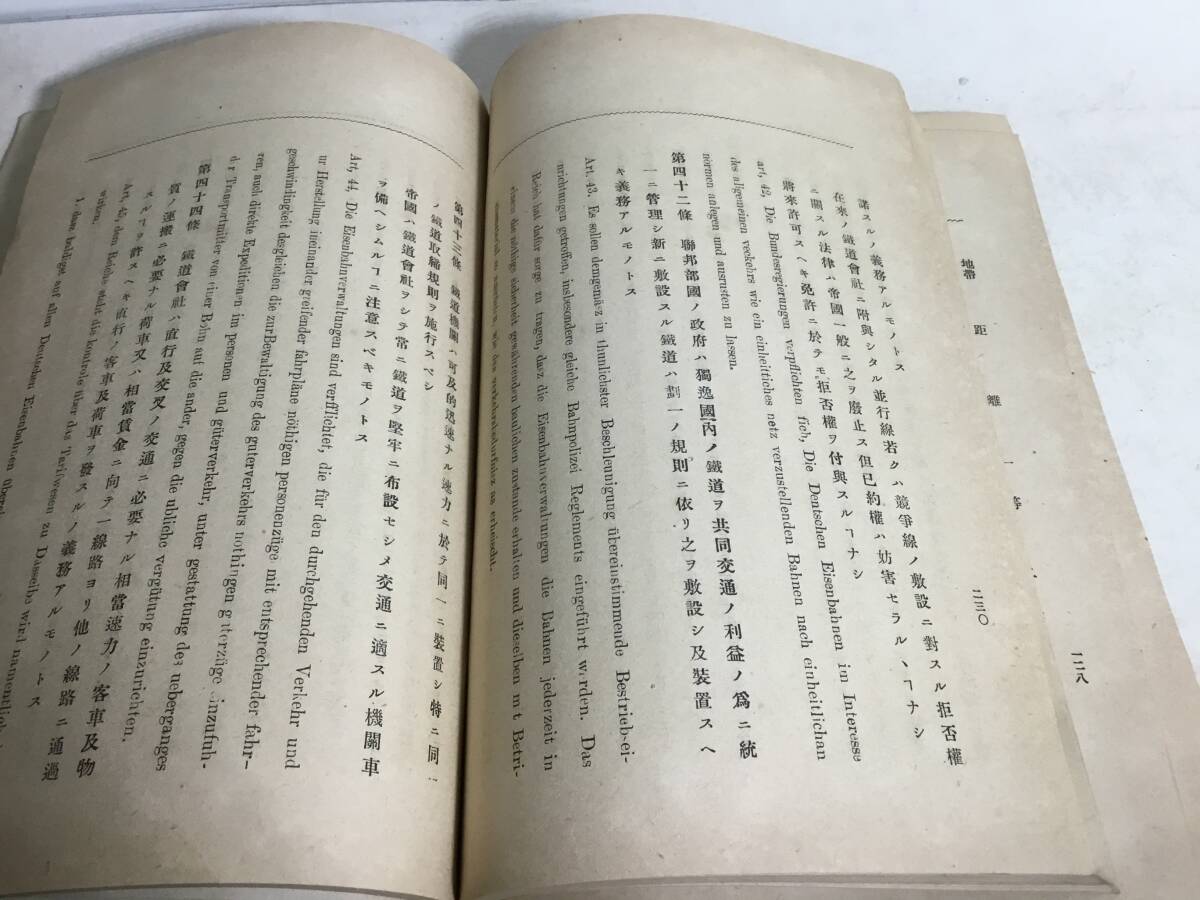 諾スルノ義務アルモノトス
在來ノ鐵道會社ニ附與シタル並行線若クハ競爭線ノ敷設ニ對スル拒否權
ニ關スル法律ハ帝國一般ニ之ヲ廢止ス但已約權ハ妨害セラルヽヿナシ
將來許可スヘキ免許ニ於テモ拒否權ヲ付與スルヿナシ
art, 42, Die Bundesregierungen verpflichten fich, Die Dentschen Eisenbahnen im Interesse
des allgemeinen verkehrs wie ein einheittiches netz verzustellenden Bahnen nach einheitlichan
normen anlegen und ausrusten zu lassen.
第四十二條 聯邦部國ノ政府ハ獨逸國內ノ鐵道ヲ共同交通ノ利益ノ爲ニ統
一ニ管理シ新ニ敷設スル鐵道ハ劃一ノ規則ニ依リ之ヲ敷設シ及裝置スヘ
キ義務アルモノトス
Art. 43. Es sollen demgemäsz in thunlichster Beschleunigung übereinstimmeude Bestrieb-ei-
nrichtungen getroffen, insbesondere gleiche Bahnpolizei Reglements eingeführt werden. Das
Reich hat dafür sorge zu tragen, dasz die Eisenbahnverwaltungen die Bahnen jederzeit in
einem die nöthige sicherheit gewährenden baulichen zustande erhalten und dieselben mit Betri-
第四十三條 鐵道機關ハ可及的迅速ナル速力ニ於テ同一ニ裝置シ特ニ同一
ノ鐵道取締規則ヲ施行スベシ
帝國ハ鐵道會社ヲシテ常ニ鐵道ヲ堅牢ニ布設セシメ交通ニ適スル機關車
ヲ備ヘシムルヿニ注意スベキモノトス
Art, 44, Die Eisenbahnverwaltungen sind verfflichtet, die für den durchgehenden Verkehr und
ur Herstellung ineinander greifender fahrpläne nöthigen personenzüge mit entsprechender fahr-
geschwindingkeit desgleichen die zurBewaltigung des guterverkehrs nothingen guterzüge einzufuh-
ren, auch direkte Expeditionen im personen und güterverkehr, unter gestattung des ueberganges
der Transportmitter von einer Bohn auf die ander, gegen die ubliche vergütung einzurichten.
第四十四條 鐵道會社ハ直行及交叉ノ交通ニ必要ナル相當速力ノ客車及物
質ノ運搬ニ必要ナル荷車又ハ相當賃金ニ向テ一線路ヨリ他ノ線路ニ通過
スルヿヲ許スヘキ直行ノ客車及荷車ヲ發スルノ義務アルモノトス
Art, 45, dem Reiche steht die kontrole über das Tarifwesen zu Dasselbe wird namentlich
地帶 距離
二三〇
二二八